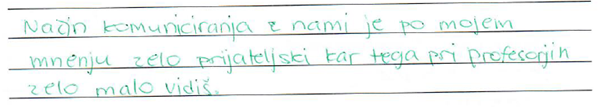 Način komuniciranja z nami je po mojem
mnenju zelo prijateljski kar tega pri profesorjih
zelo malo vidiš.